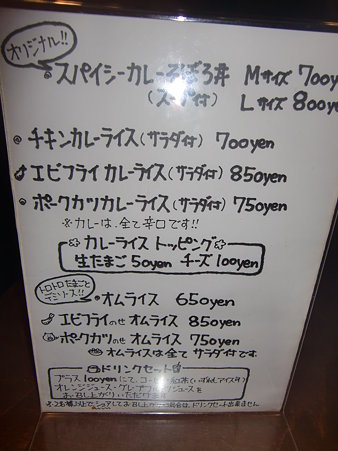 オリジナル!!
スパイシーカレーそぼろ丼 Mサイズ 700ye
(スープ付) Lサイズ 800ye
チキンカレーライス(サラダ付) 700yen
エビフライカレーライス(サラダ付) 850yen
ポークカツカレーライス(サラダ付) 750yen
※カレーは、全て辛口です!!
カレーライス トッピング
生たまご 50yen チーズ 100yen
トロトロたまごと
オムライス 650yen
エビフライのせ オムライス 850yen
ポークカツのせ オムライス 750yen
オムライスは全て サラダ付です
ドリンクセット
プラス 100yenにて、コーヒー・紅茶(いずれもアイス可)
オレンジジュース・グレープフルーツジュースを
お召し上がりいただけます
ドリンクセット出来ません